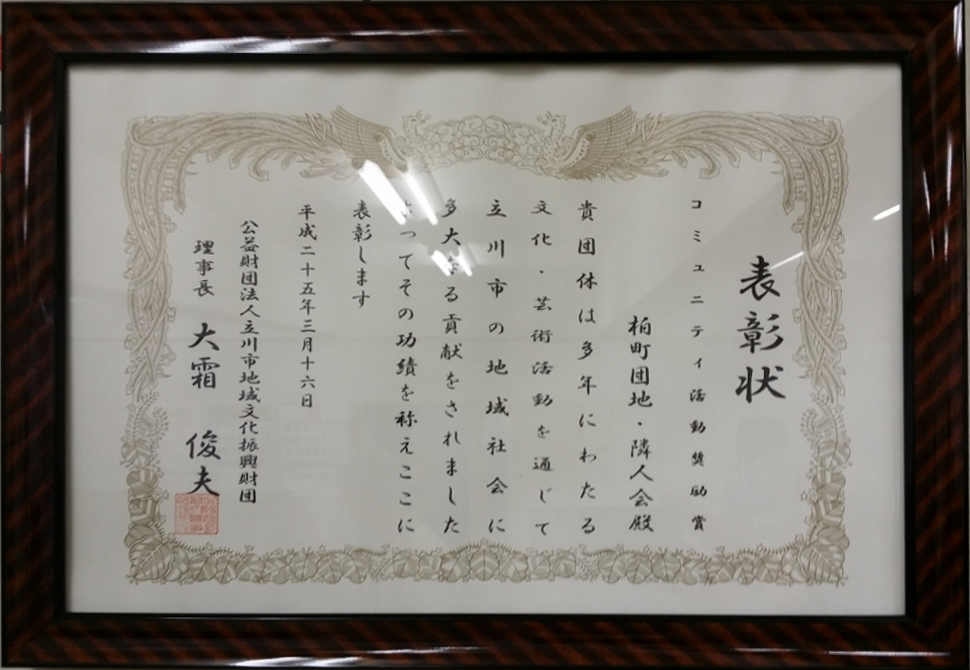 表彰状
コミュニティ活動奨励賞
柏町団地・隣人会殿
貴団体は多年にわたる
文化・芸術活動を通じて
立川市の地域社会に
多大なる貢献をされました
よってその功績を称えここに
表彰します
平成二十五年三月十六日
公益財団法人立川市地域文化振興財団
理事長 大霜 俊夫